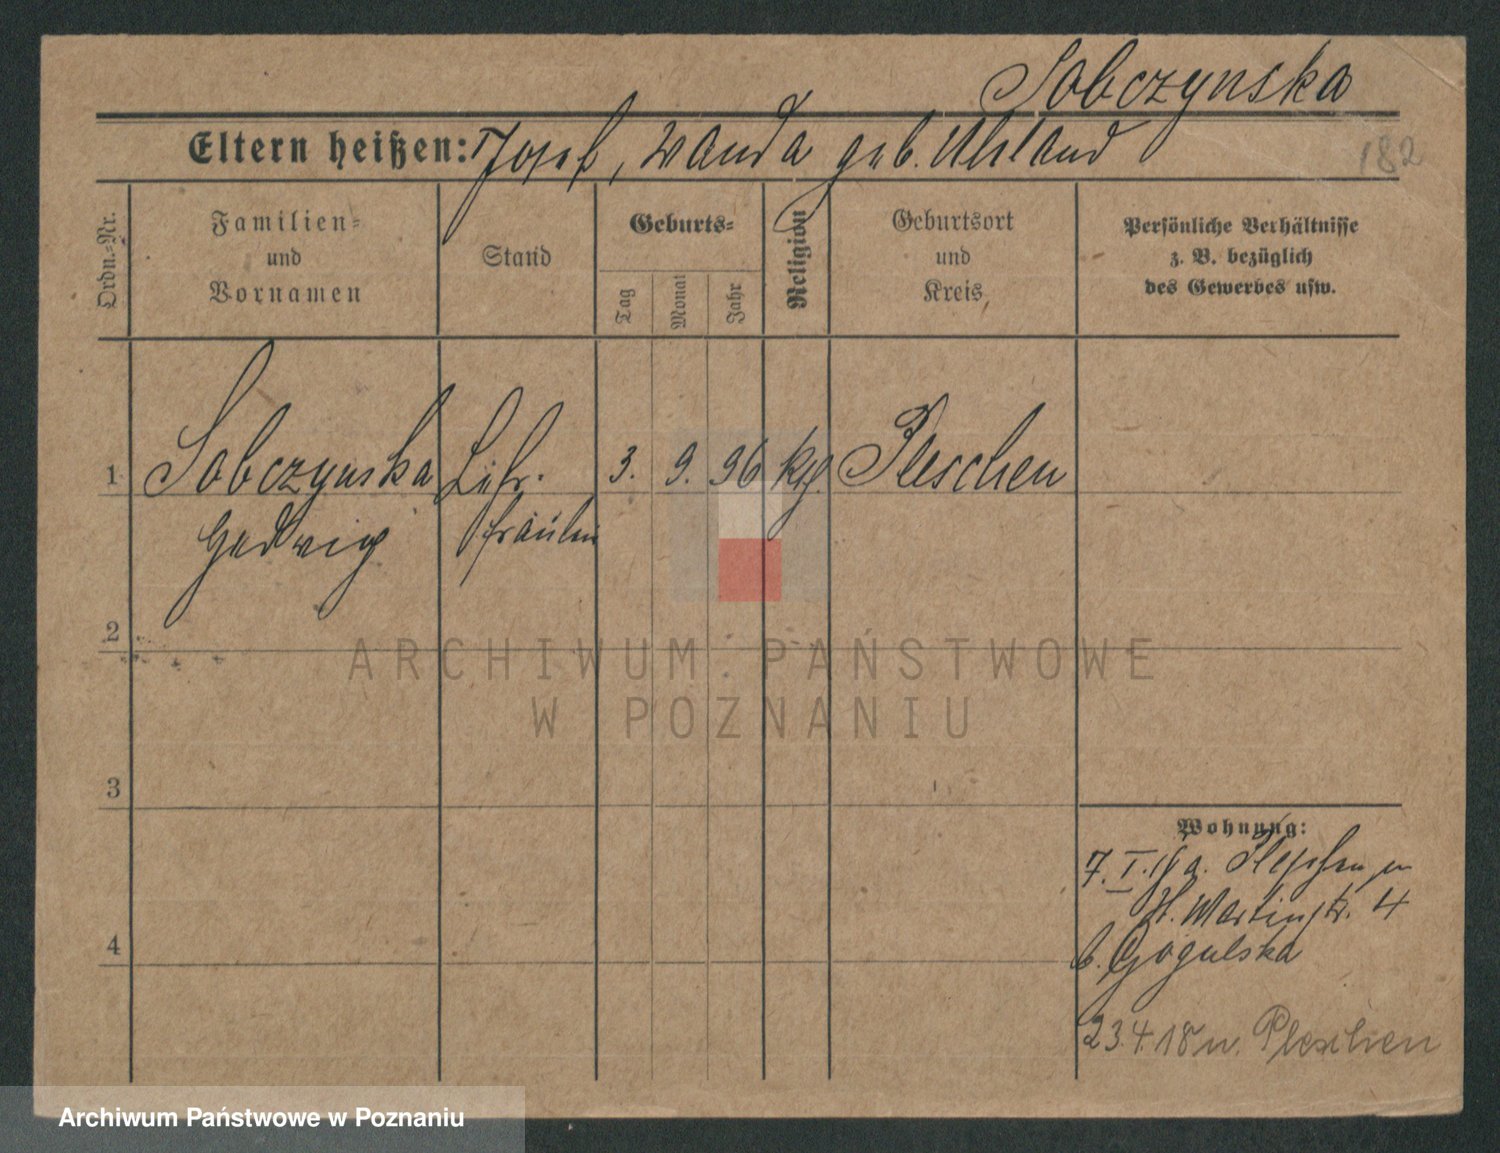 Sobczynska
Eltern heißen: Josef, Wanda geb. Uhland
182
Ordn.-Nr.
Familien-
und
Vornamen
Stand
Geburts-
Tag
Monat
Jahr
Religion
Geburtsort
und
Kreis
Persönliche Verhältnisse
z. B. bezüglich
des Gewerbes usw.
1 Sobczynska 3. 9. 96 kth. Pleschen
Hedwig fräulein
2
ARCHIWUM PAŃSTWOWE
W POZNANIU
3
4
Wohnung:
7. I. a. Pleschen
St. Martinstr. 4
b. Gogulska
23.4.18 n. Pleschen
Archiwum Państwowe w Poznaniu